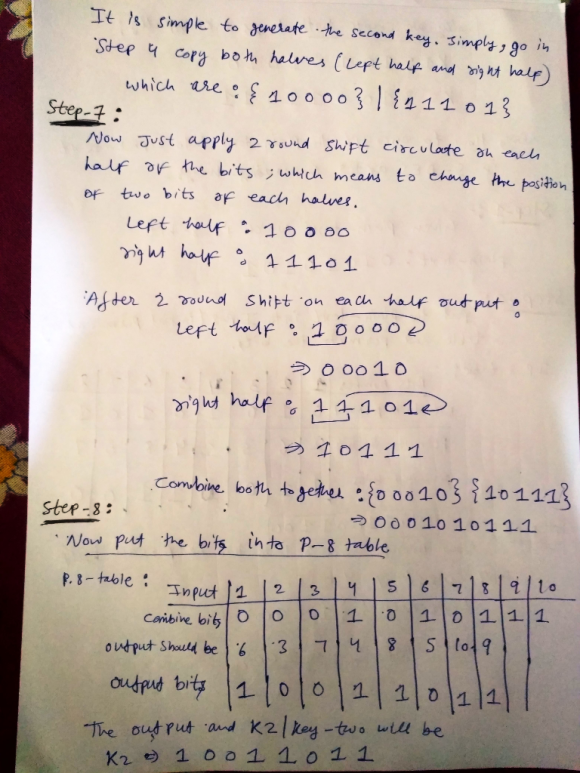 It is simple to generate the second key. Simply, go in
Step 4 copy both halves (Left half and right half)
which are : {10000} | {11101}
Step-7 :
Now Just apply 2 round Shift circulate on each
half of the bits ; which means to change the position
of two bits of each halves.
Left half : 10000
right half : 11101
After 2 round Shift on each half output :
Left half : 10000
⇒ 00010
right half : 11101
⇒ 10111
Combine both together : {00010} {10111}
⇒ 0001010111
Step-8 :
Now put the bits into P-8 table
P.8-table : Input 1 2 3 4 5 6 7 8 9 10
Combine bits 0 0 0 1 0 1 0 1 1 1
output should be 6 3 7 4 8 5 10 9
output bits 1 0 0 1 1 0 1 1
The output and K2/key-two will be
K2 ⇒ 10011011